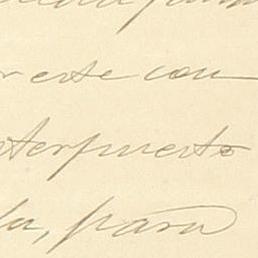 r este con
nterpuesto
la, para